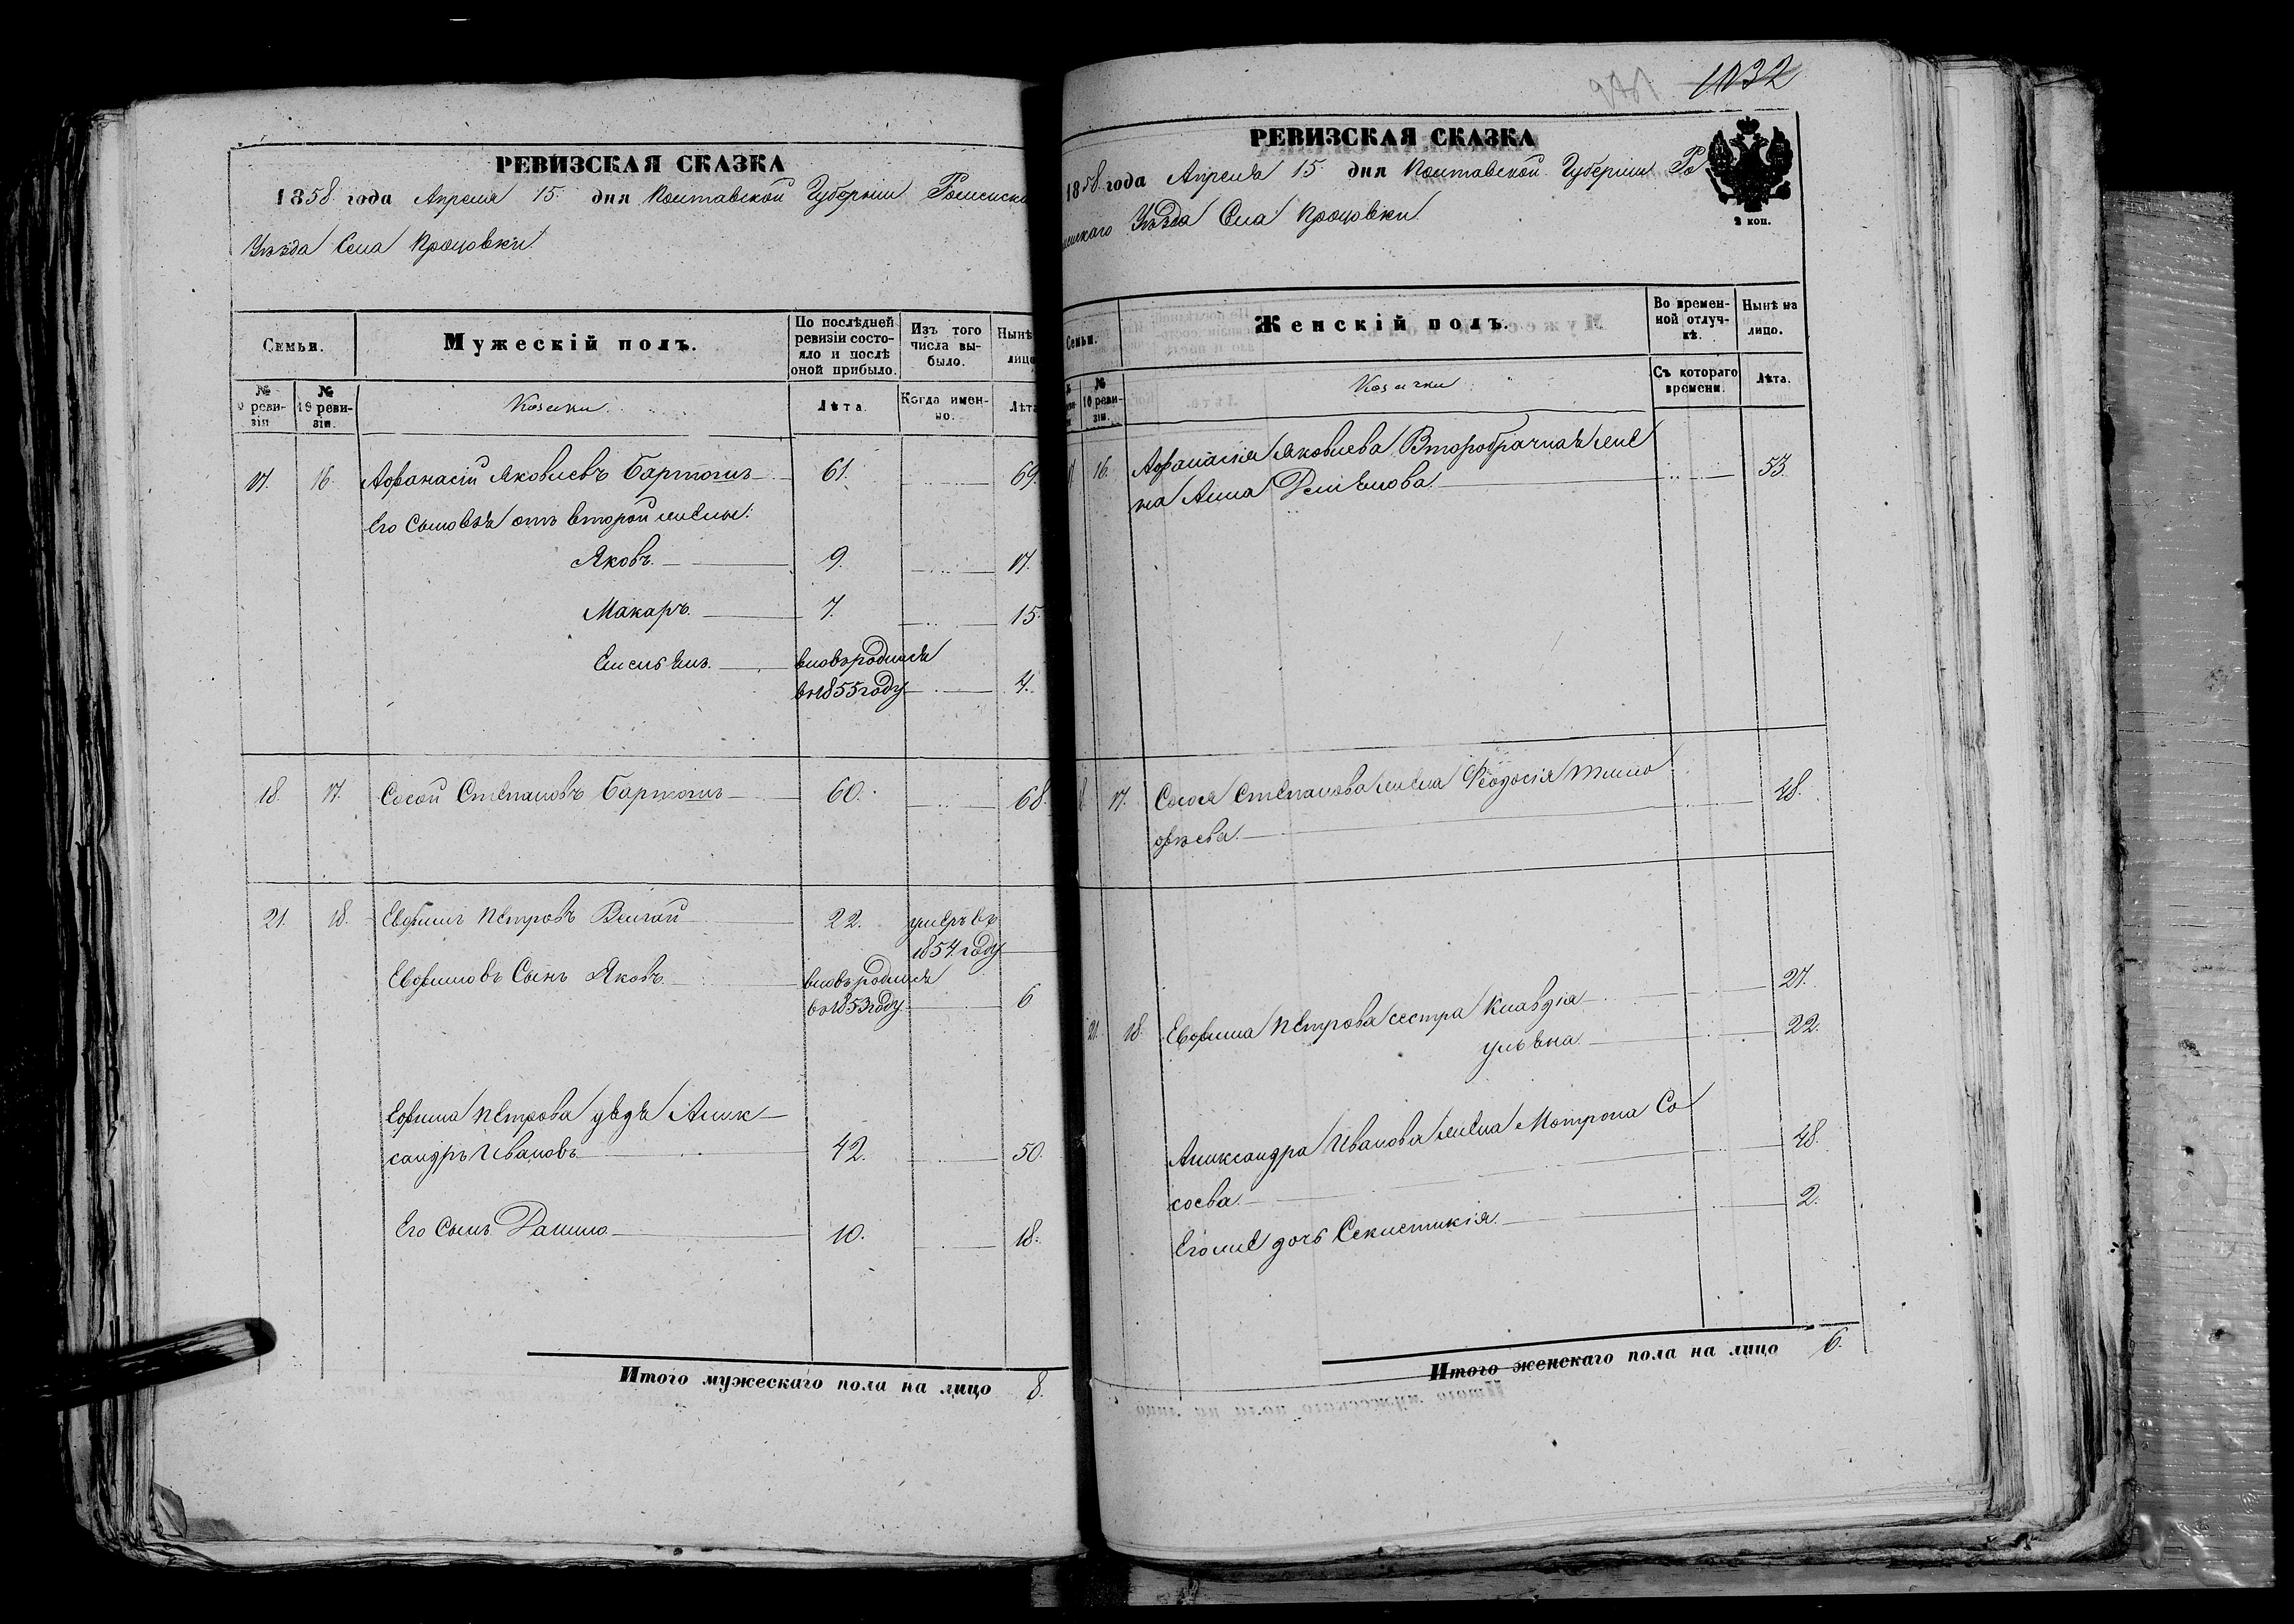 РЕВИЗСКАЯ СКАЗКА
1858 года Апреля 15 дня Полтавской Губерніи Роменска
Уѣзда Села Процовки
Семьи.
Мужескій полъ.
По послѣдней ревизіи состояло и послѣ оной прибыло.
Изъ того числа выбыло.
Нынѣ
лицо
№ реви-зіи
№ 19 реви-зіи.
Козаки.
Лѣта.
Когда имен-но.
Лѣта
17. 16. Афанасій Яковлевъ Бартошъ 61. 69.
Его Сыновья отъ второй жены:
Яковъ. 9. 17.
Макаръ. 7. 15.
Емельянъ. вновь родился
въ 1855 году 4.
18. 17. Сосой Степановъ Бартошъ 60. 68.
21. 18. Евфимъ Петровъ 22. умеръ въ
1854 году
Евфимовъ Сынъ Яковъ. вновь родился
въ 1853 году 6
Ефима Петрова дядя Алек
сандръ Ивановъ 42. 50.
Его Сынъ Данило 10. 18.
Итого мужескаго пола на лицо 8.
1032
РЕВИЗСКАЯ СКАЗКА
1858 года Апреля 15 дня Полтавской Губерніи Ро
менскаго Уѣзда Села Процовки
2 коп.
Семьи.
Женскій полъ.
Во времен-ной отлуч-кѣ.
Нынѣ на лицо.
№ 10 реви-зіи.
Козачки
Съ котораго времени.
Лѣта.
16. Афанасія Яковлева Второбрачная же
на Анна Демьянова. 53.
17. Сосоя Степанова жена Феодосія Тимо
фѣева. 48.
21. 18. Евфима Петрова сестра Клавдія 27.
Ульяна. 22.
Александра Иванова жена Мотрона Со
соева. 48.
Его же дочь Секлетикія. 2.
Итого женскаго пола на лицо 6.